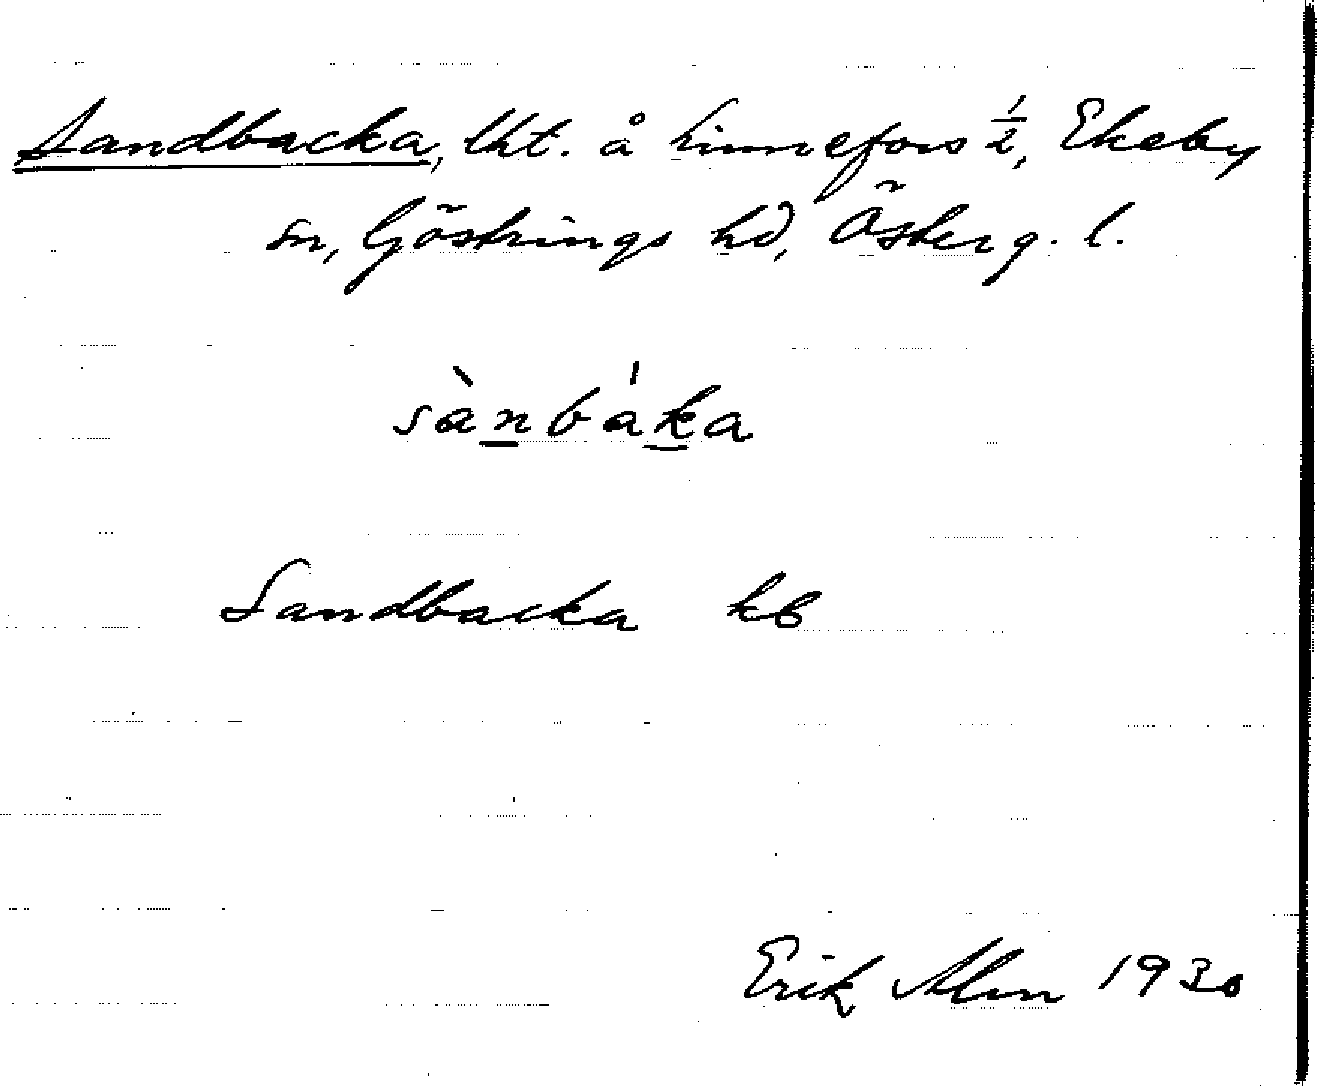 Sandbacka, lht. å Linnefors ½, Ekeby
sn, Göstrings hd, Österg. l.
sànbáka
Sandbacka kb
Erik Alm 1930